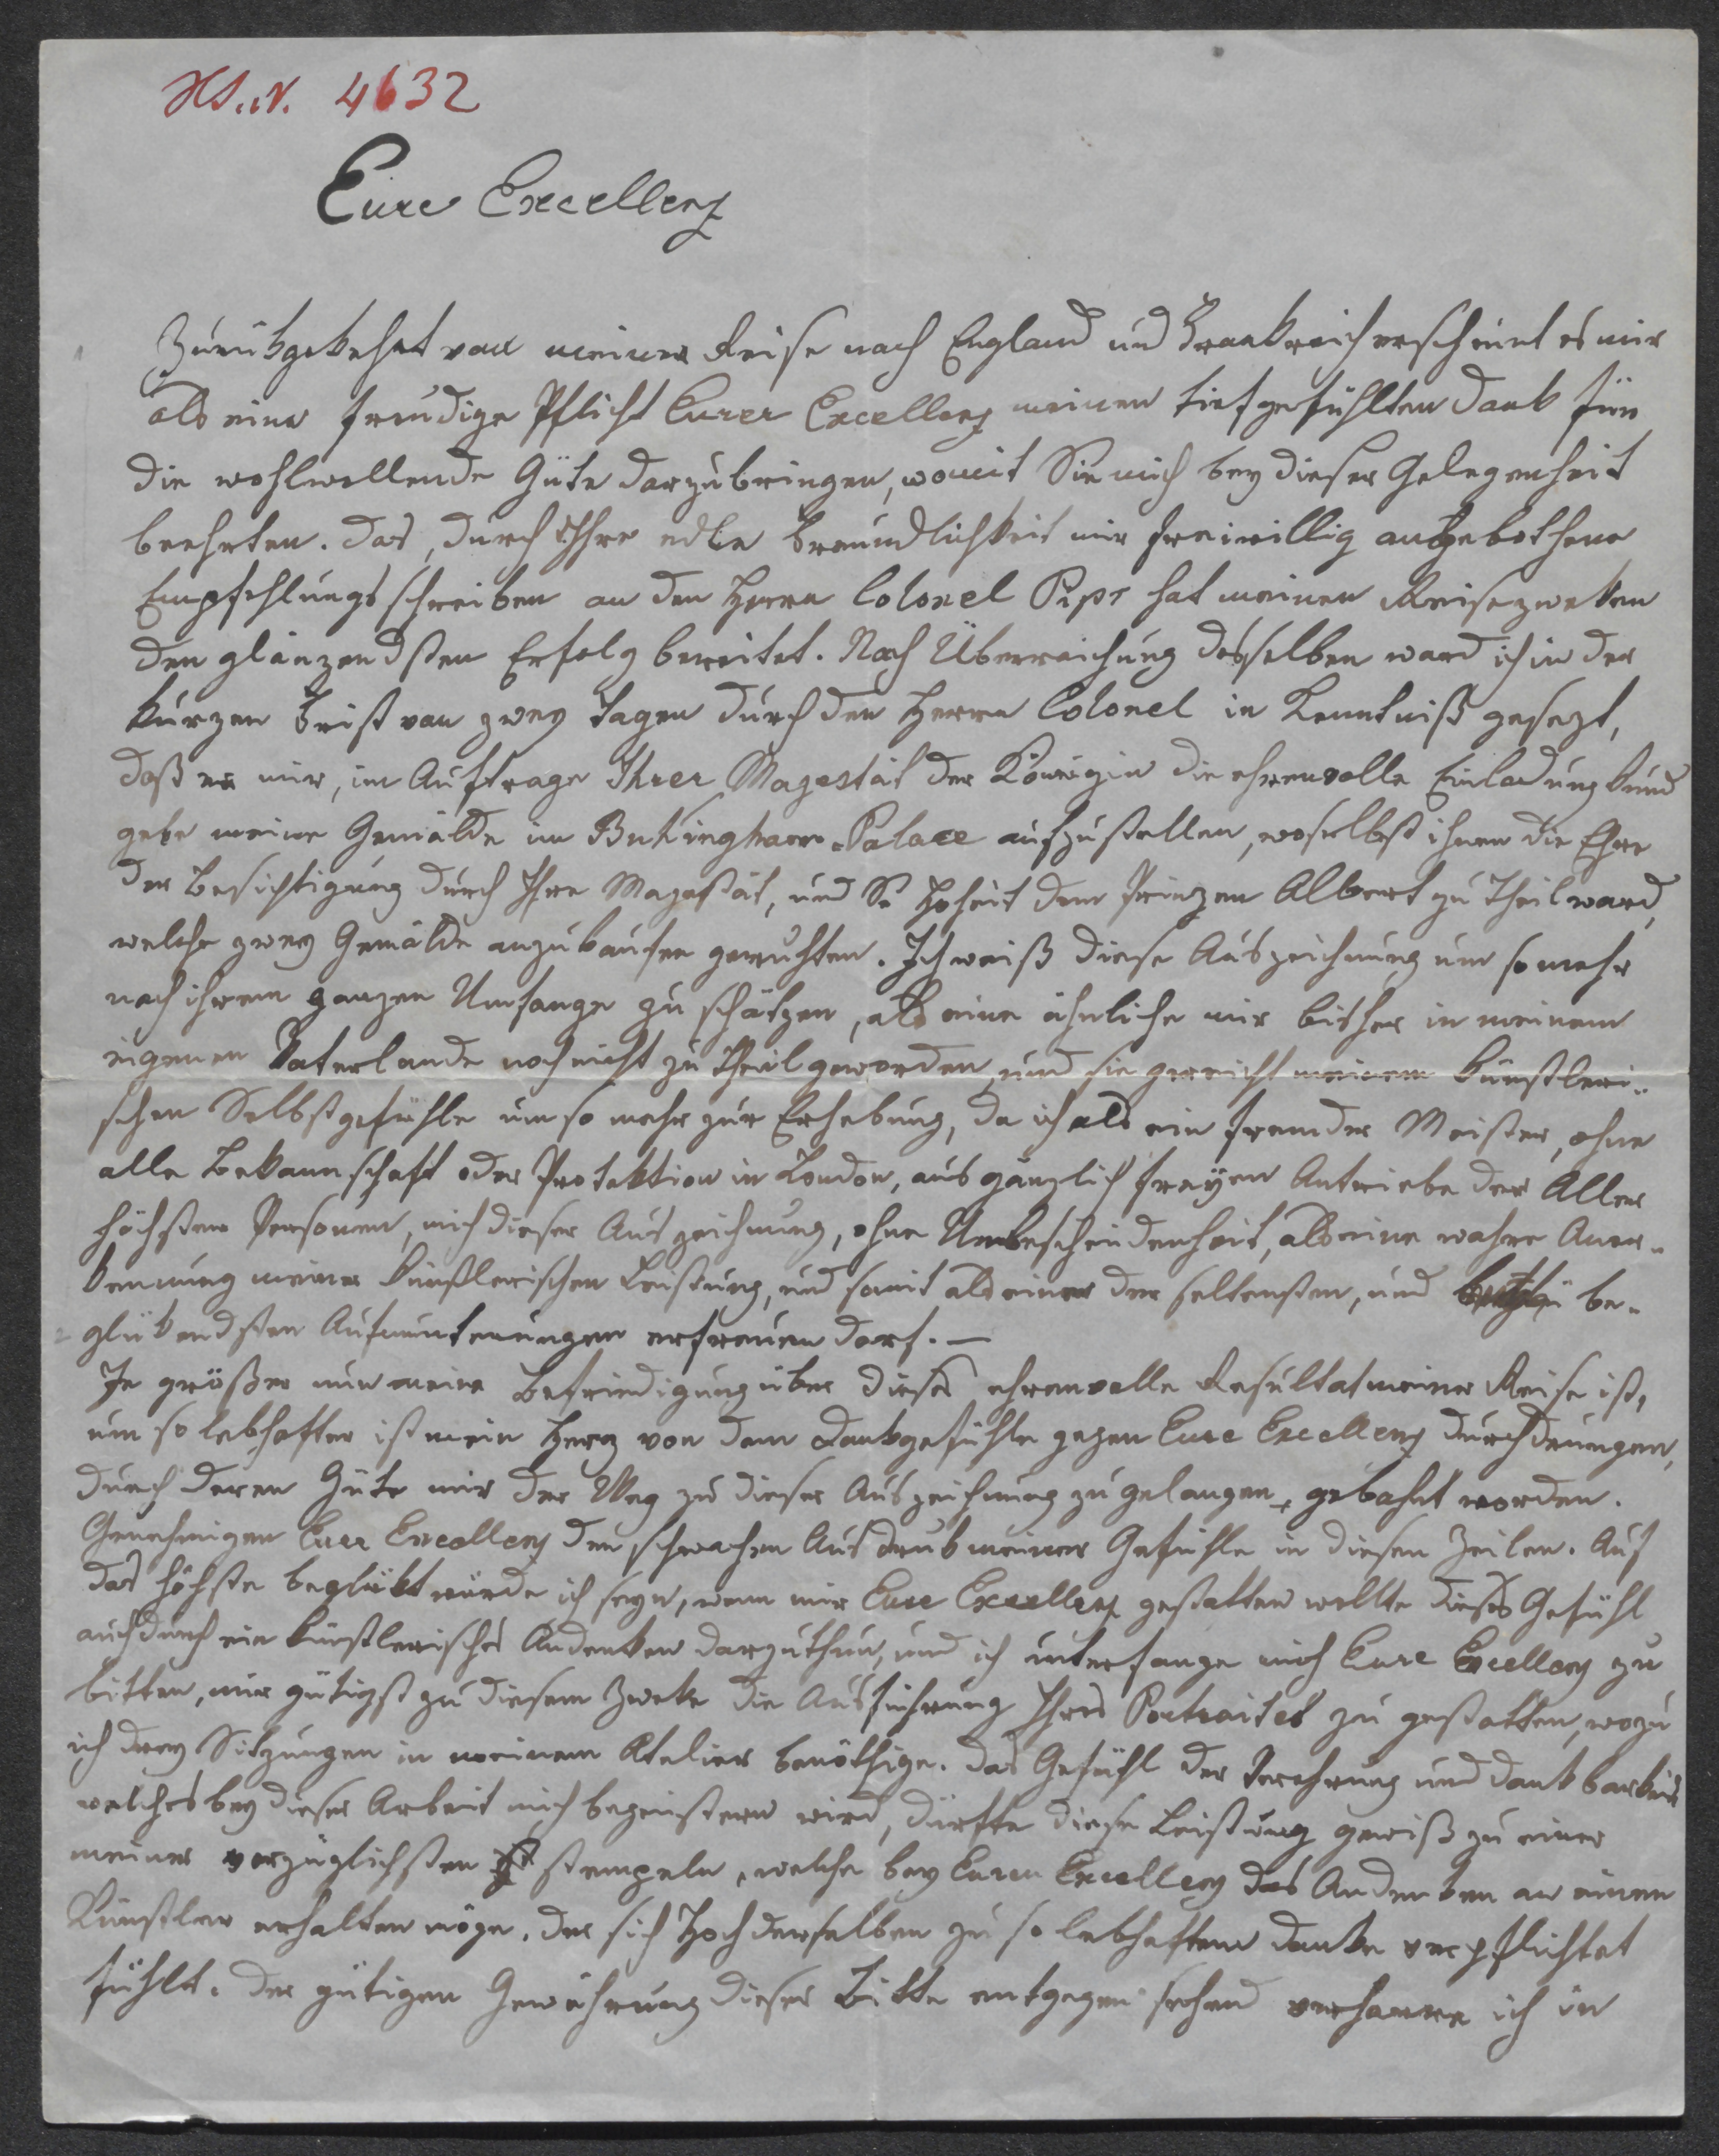 HS. N. 4632
Eure Excellenz
Zurükgekehrt von meiner Reise nach England und Frankreich erscheint es mir
als eine freudige Pflicht Eurer Excellenz meinen tiefgefühlten Dank für
die wohlwollende Güte darzubringen, womit Sie mich bey dieser Gelegenheit
beehrten. Das, durch Ihre edle Freundlichkeit mir freiwillig angebothene
Empfehlungsschreiben an den Herrn Colonel Pips hat meinen Reisezweken
den glänzendsten Erfolg bereitet. Nach Überreichung desselben ward ich in der
kurzen Frist von zwey Tagen durch den Herrn Colonel in Kenntniß gesezt,
daß er mir, im Auftrage Ihrer Magestät der Königin die ehrenvolle Einladung kund
gebe meine Gemälde im Bukingham-Palace aufzustellen, woselbst ihnen die Ehre
der Besichtigung durch Ihre Magestät, und Se Hoheit dem Prinzen Albert zu Theil ward,
welche zwey Gemälde anzukaufen geruhten. Ich weiß diese Auszeichnung um so mehr
nach ihrem ganzen Umfange zu schätzen, als eine ähnliche mir bisher in meinem
eigenen Vaterlande noch nicht zu Theil geworden, und sie gereicht meinem künstleri-
schen Selbstgefühle um so mehr zur Erhebung, da ich als ein fremder Meister, ohne
alle Bekannschaft oder Protektion in London, aus gänzlich freyen Antriebe der Aller
höchsten Personen, mich dieser Auszeichnung, ohne Unbescheidenheit, als eine wahre Aner-
kennung meiner künstlerischen Leistung, und somit als einer der seltensten, und be-
glükendsten Aufmunterungen erfreuen darf. —
Je größer nun meine Befriedigung über dieses ehrenvolle Resultat meiner Reise ist,
um so lebhafter ist mein Herz von dem Dankgefühle gegen Eure Excellenz durchdrungen,
durch deren Güte mir der Weg zu dieser Auszeichnung zu gelangen, gebahnt worden.
Genehmigen Eure Excellenz den schwachen Ausdruk meiner Gefühle in diesen Zeilen. Auf
das höchste beglükt würde ich seyn, wenn mir Eure Excellenz gestatten wollte dieses Gefühl
auch durch ein künstlerisches Andenken darzuthun, und ich unterfange mich Eure Excellenz zu
bitten, mir gütigst zu diesem Zweke die Ausführung Ihres Portraites zu gestatten, wozu
ich drey Sitzungen in meinem Atelier benöthige. Das Gefühl der Verehrung und Dankbarkeit
welches bey dieser Arbeit mich begeistern wird, dürfte diese Leistung gewiß zu einer
meiner vorzüglichsten stempeln, welche bey Euren Excellenz das Andenken an einen
Künstler erhalten möge, der sich Hochderselben zu so lebhaftem Danke verpflichtet
fühlt. Der gütigen Gewährung dieser Bitte entgegen sehend verharre ich in